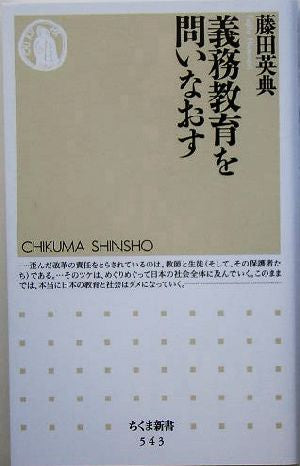 藤田英典
義務教育を
問いなおす
CHIKUMA SHINSHO
……歪んだ改革の責任をとらされているのは、教師と生徒(そして、その保護者た
ち)である。…そのツケは、めぐりめぐって日本の社会全体に及んでいく。このまま
では、本当に日本の教育と社会はダメになっていく。
ちくま新書
543